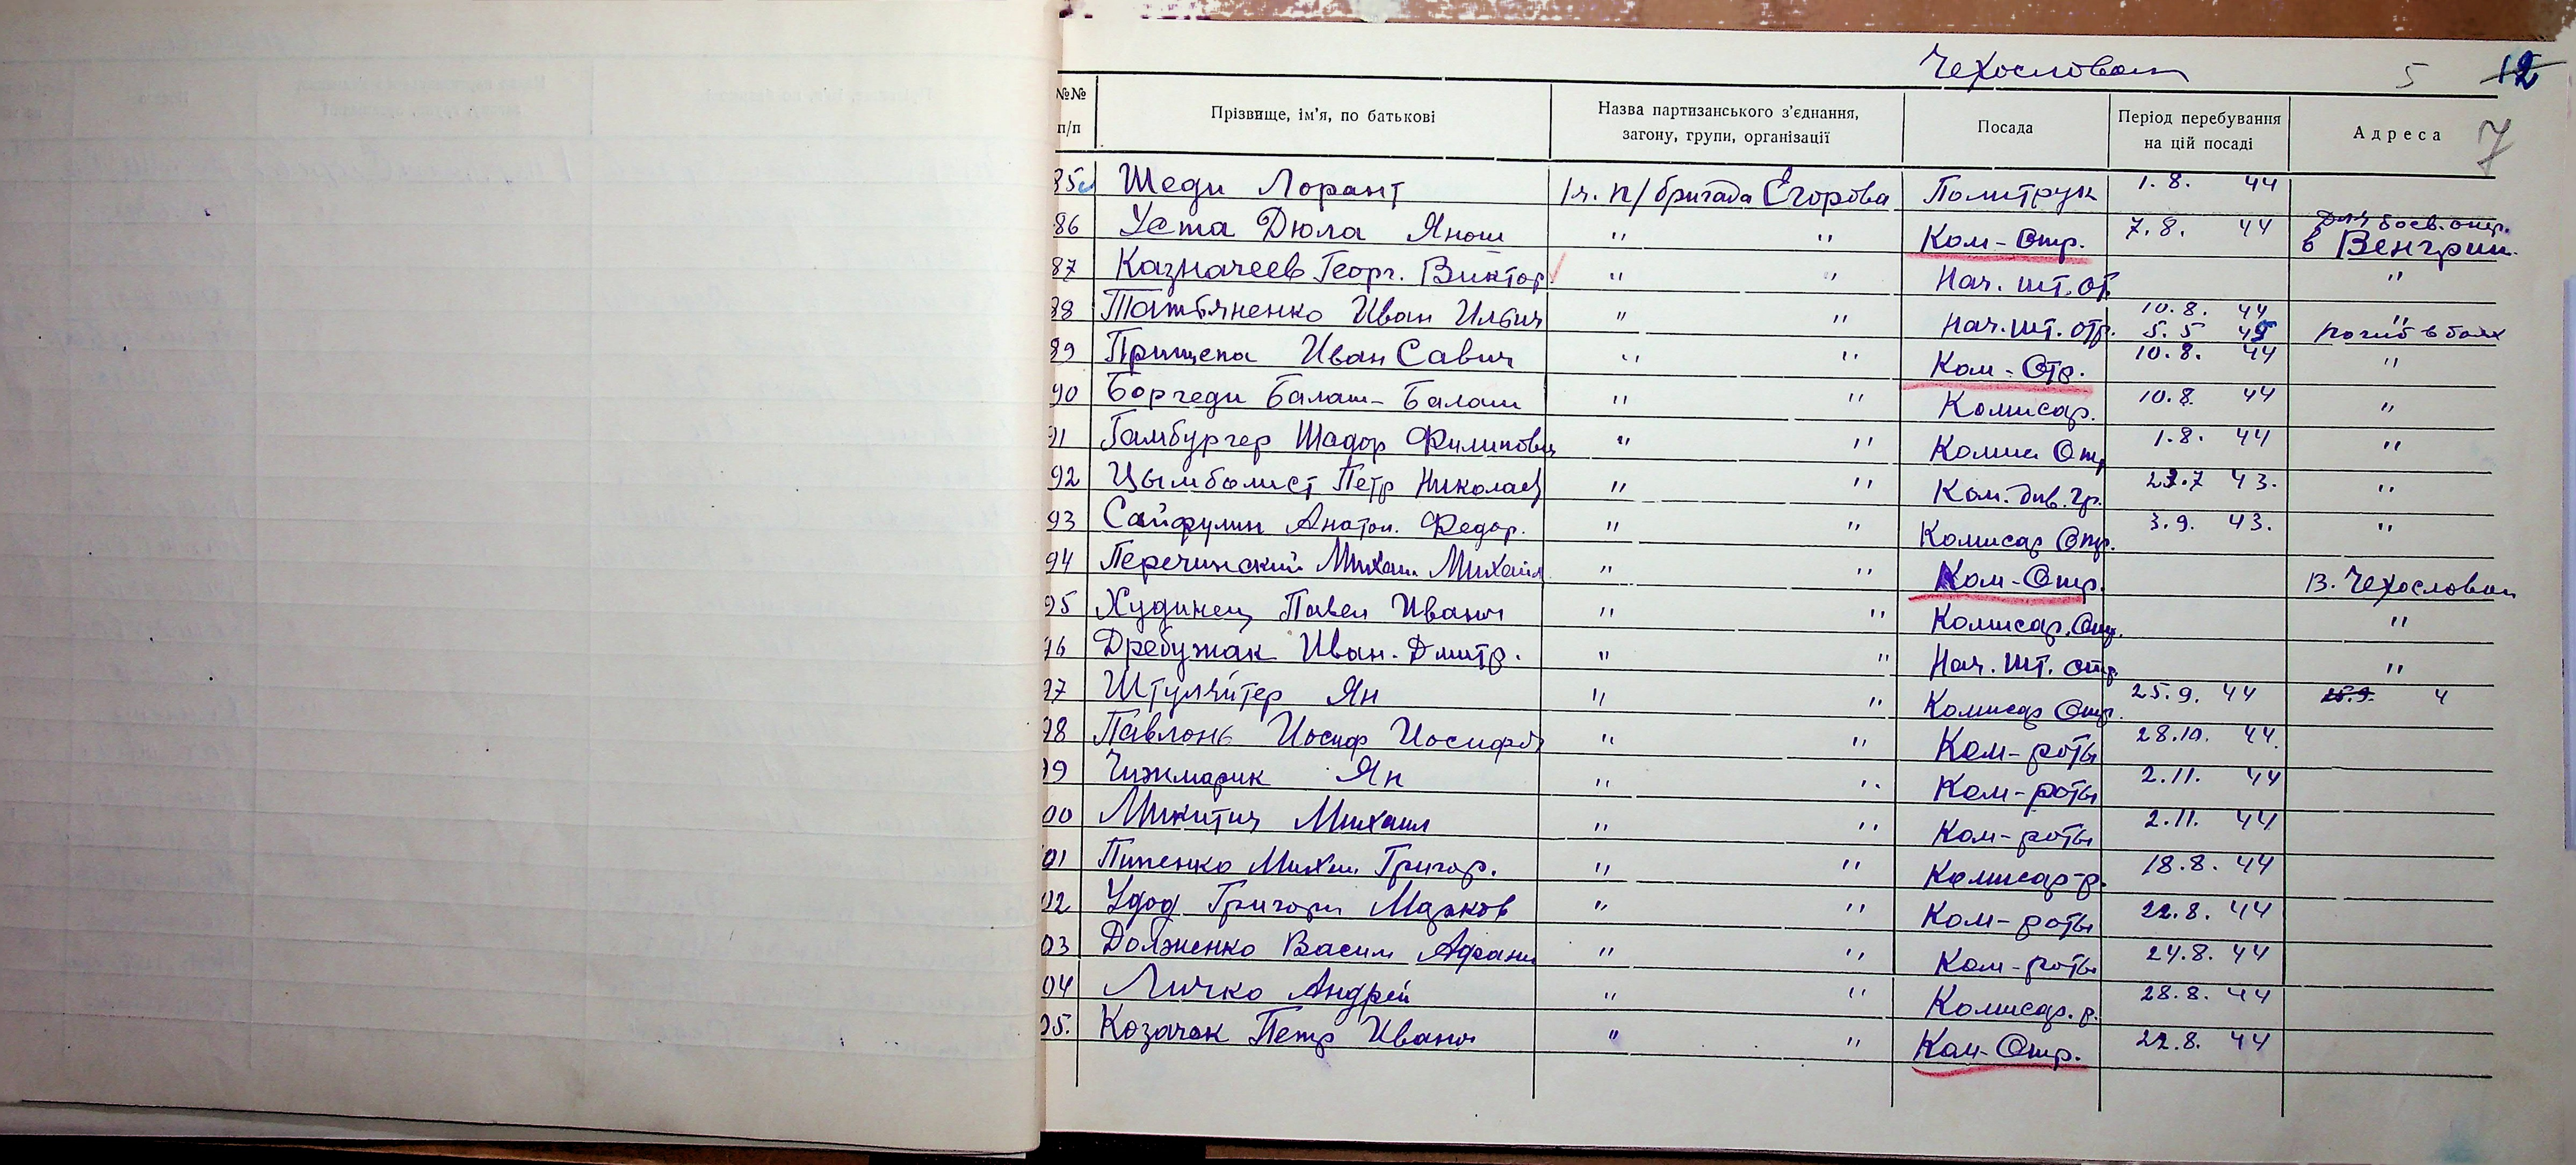 Чехословак 5 12
№№ п/п Прізвище, ім'я, по батькові Назва партизанського з'єднання, загону, групи, організації Посада Період перебування на цій посаді Адреса 7
85 Шеди Лорант 1ч. п/бригада Егорова Политрук 1.8. 44
86 Уста Дюла Янош " " Ком-Отр. 7.8. 44 боев. опер. в Венгрии.
87 Казначеев Георг. Виктор " " Нач. шт. от. "
88 Татьяненко Иван Ильич " " Нач. шт. отр. 10.8. 44 5.5 45 " погиб в боях
89 Прищепа Иван Савич " " Ком-Отр. 10.8. 44 "
90 Боргеди Балаш-Балаш " " Комисар. 10.8. 44 "
91 Гамбургер Шадор Филипович " " Комис Отр 1.8. 44 "
92 Цымбалист Петр Николаев " " Ком. див. гр. 23.7 43. "
93 Сайфулин Анатол. Федор. " " Комисар Отр. 3.9. 43. "
94 Перечинский Михаил Михайл " " Ком-Отр. В. Чехословак
95 Худинец Павел Иванович " " Комисар. Отр. "
96 Дребужак Иван. Дмитр. " " Нач. шт. отр. "
97 Штуляйтер Ян " " Комисар Отр. 25.9. 44 25.9. 4
98 Павлонь Иосиф Иосифов " " Ком-роты 28.10. 44.
99 Чижмарик Ян " " Ком-роты 2.11. 44
00 Микитич Михаил " " Ком-роты 2.11. 44
01 Пипенко Михаил Григор. " " Комисар-р. 18.8. 44
02 Удод Григори Марков " " Ком-роты 22.8. 44
03 Долженко Васили Афани " " Ком-роты 24.8. 44
04 Личко Андрей " " Комисар. р. 28.8. 44
05. Козачек Петр Иванович " " Ком-Отр. 22.8. 44